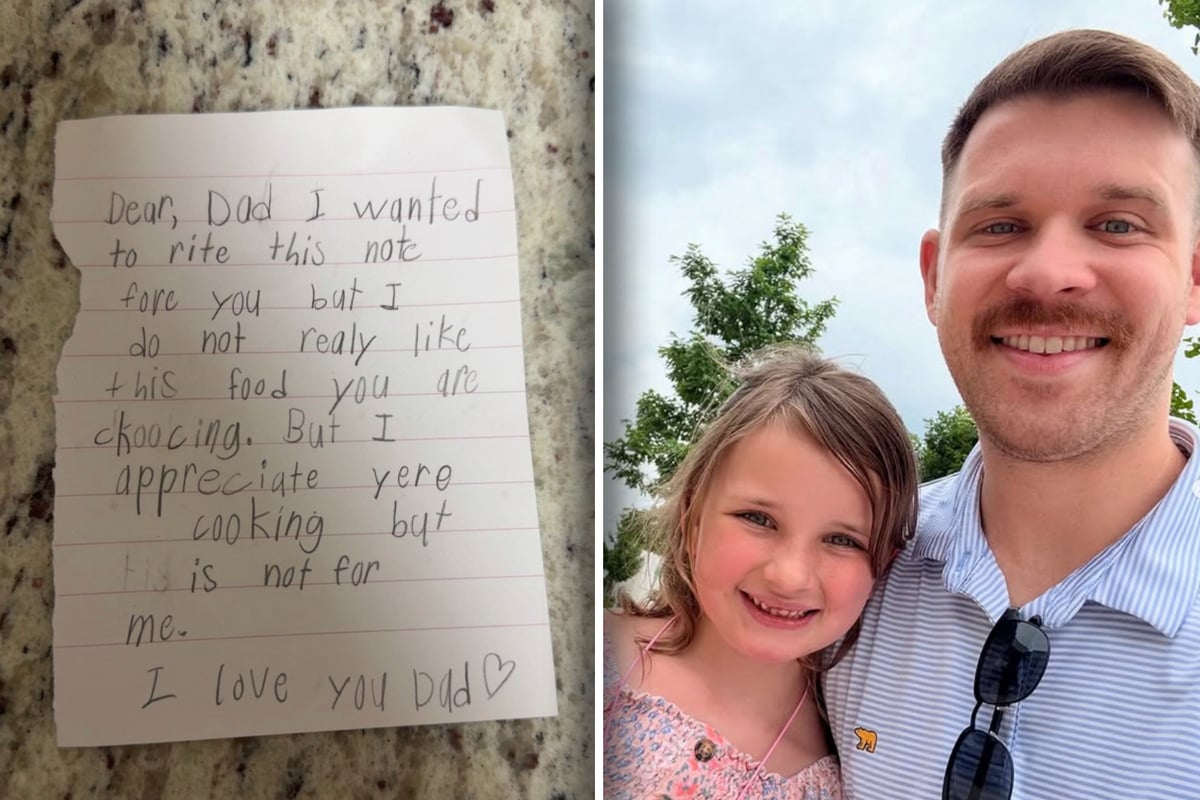 Dear, Dad I wanted
to rite this note
fore you but I
do not realy like
this food you are
ckoocing. But I
appreciate yere
cooking but
is not for
me.
I love you Dad♡